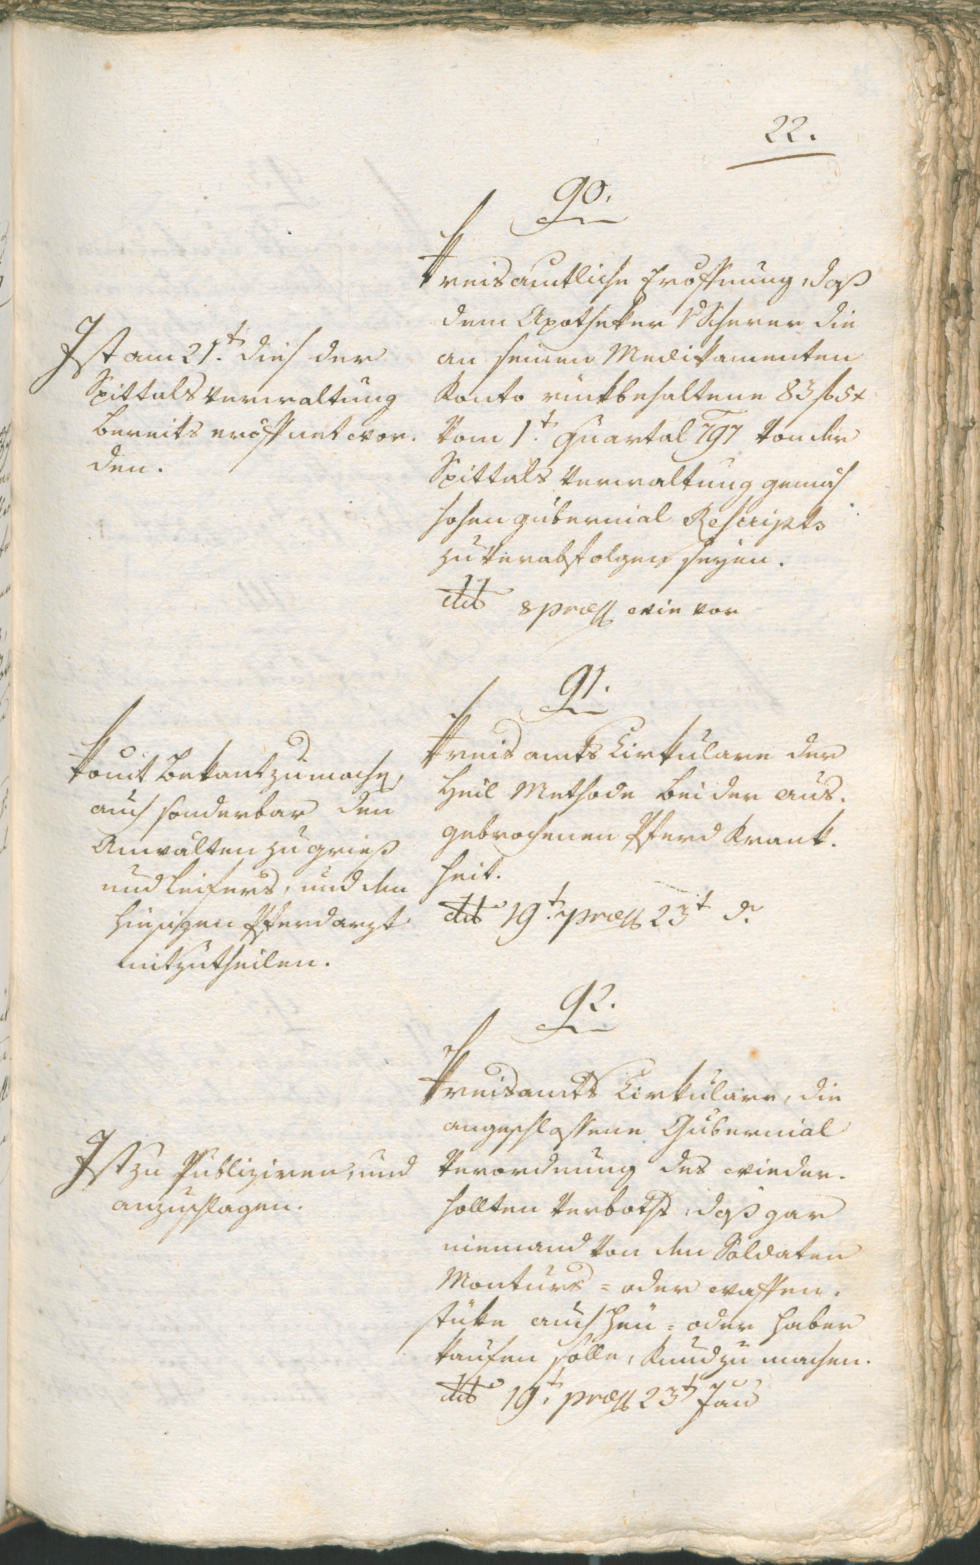 22.
90.
Kreisamtliche Eröffnung, daß
dem Apotheker v Scherer die
an seinen Medikamenten
Konto rükbehaltene 83 f 5 x
vom 1t. Quartal 797 von der
Spittals Verwaltung gemäs
hohen gubernial Rescripts
zu verabfolgen seyen.
dto 8 præss wie vor
Ist am 21t. dies der
Spittals Verwaltung
bereits eröffnet wor-
den.
91.
Kreisamts Cirkulare der
Heil Methode bei der aus-
gebrochenen Pferd Krank-
heit.
dto 19t. præss 23t d.
Komt bekant zu machen,
auch sonderbar den
Anwälten zu Gries
und Leifers, und dem
hiesigen Pferdarzt
mitzutheilen.
92.
Kreisamts Cirkulare, die
angeschlossene Gubernial
Verordnung des wieder-
hollten Verboths, daß gar
niemand von den Soldaten
Monturs= oder waffen-
stüke auch Heu= oder Haber
kaufen solle, kund zu machen.
dto 19t. præss 23t Jan
Ist zu Publiziren, und
anzuschlagen.